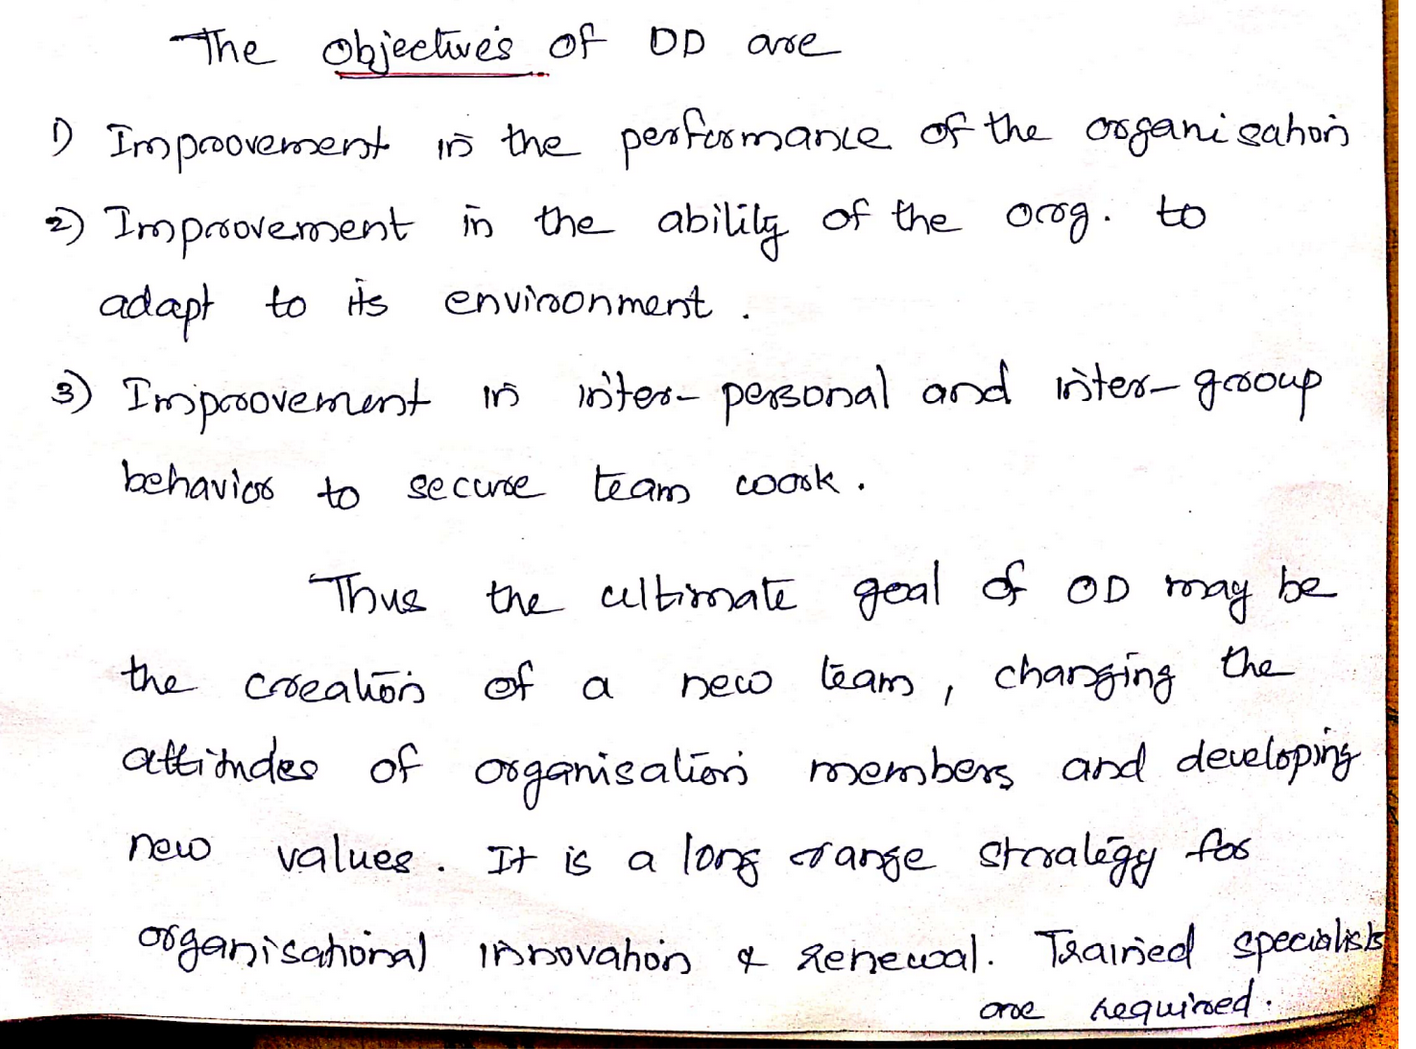 The Objectives of OD are
1) Improvement in the performance of the organisation
2) Improvement in the ability of the org. to
adapt to its environment.
3) Improvement in inter-personal and inter-group
behavior to secure team work.
Thus the ultimate goal of OD may be
the creation of a new team, changing the
attitudes of organisation members and developing
new values. It is a long range strategy for
organisational innovation & renewal. Trained specialists
are required.